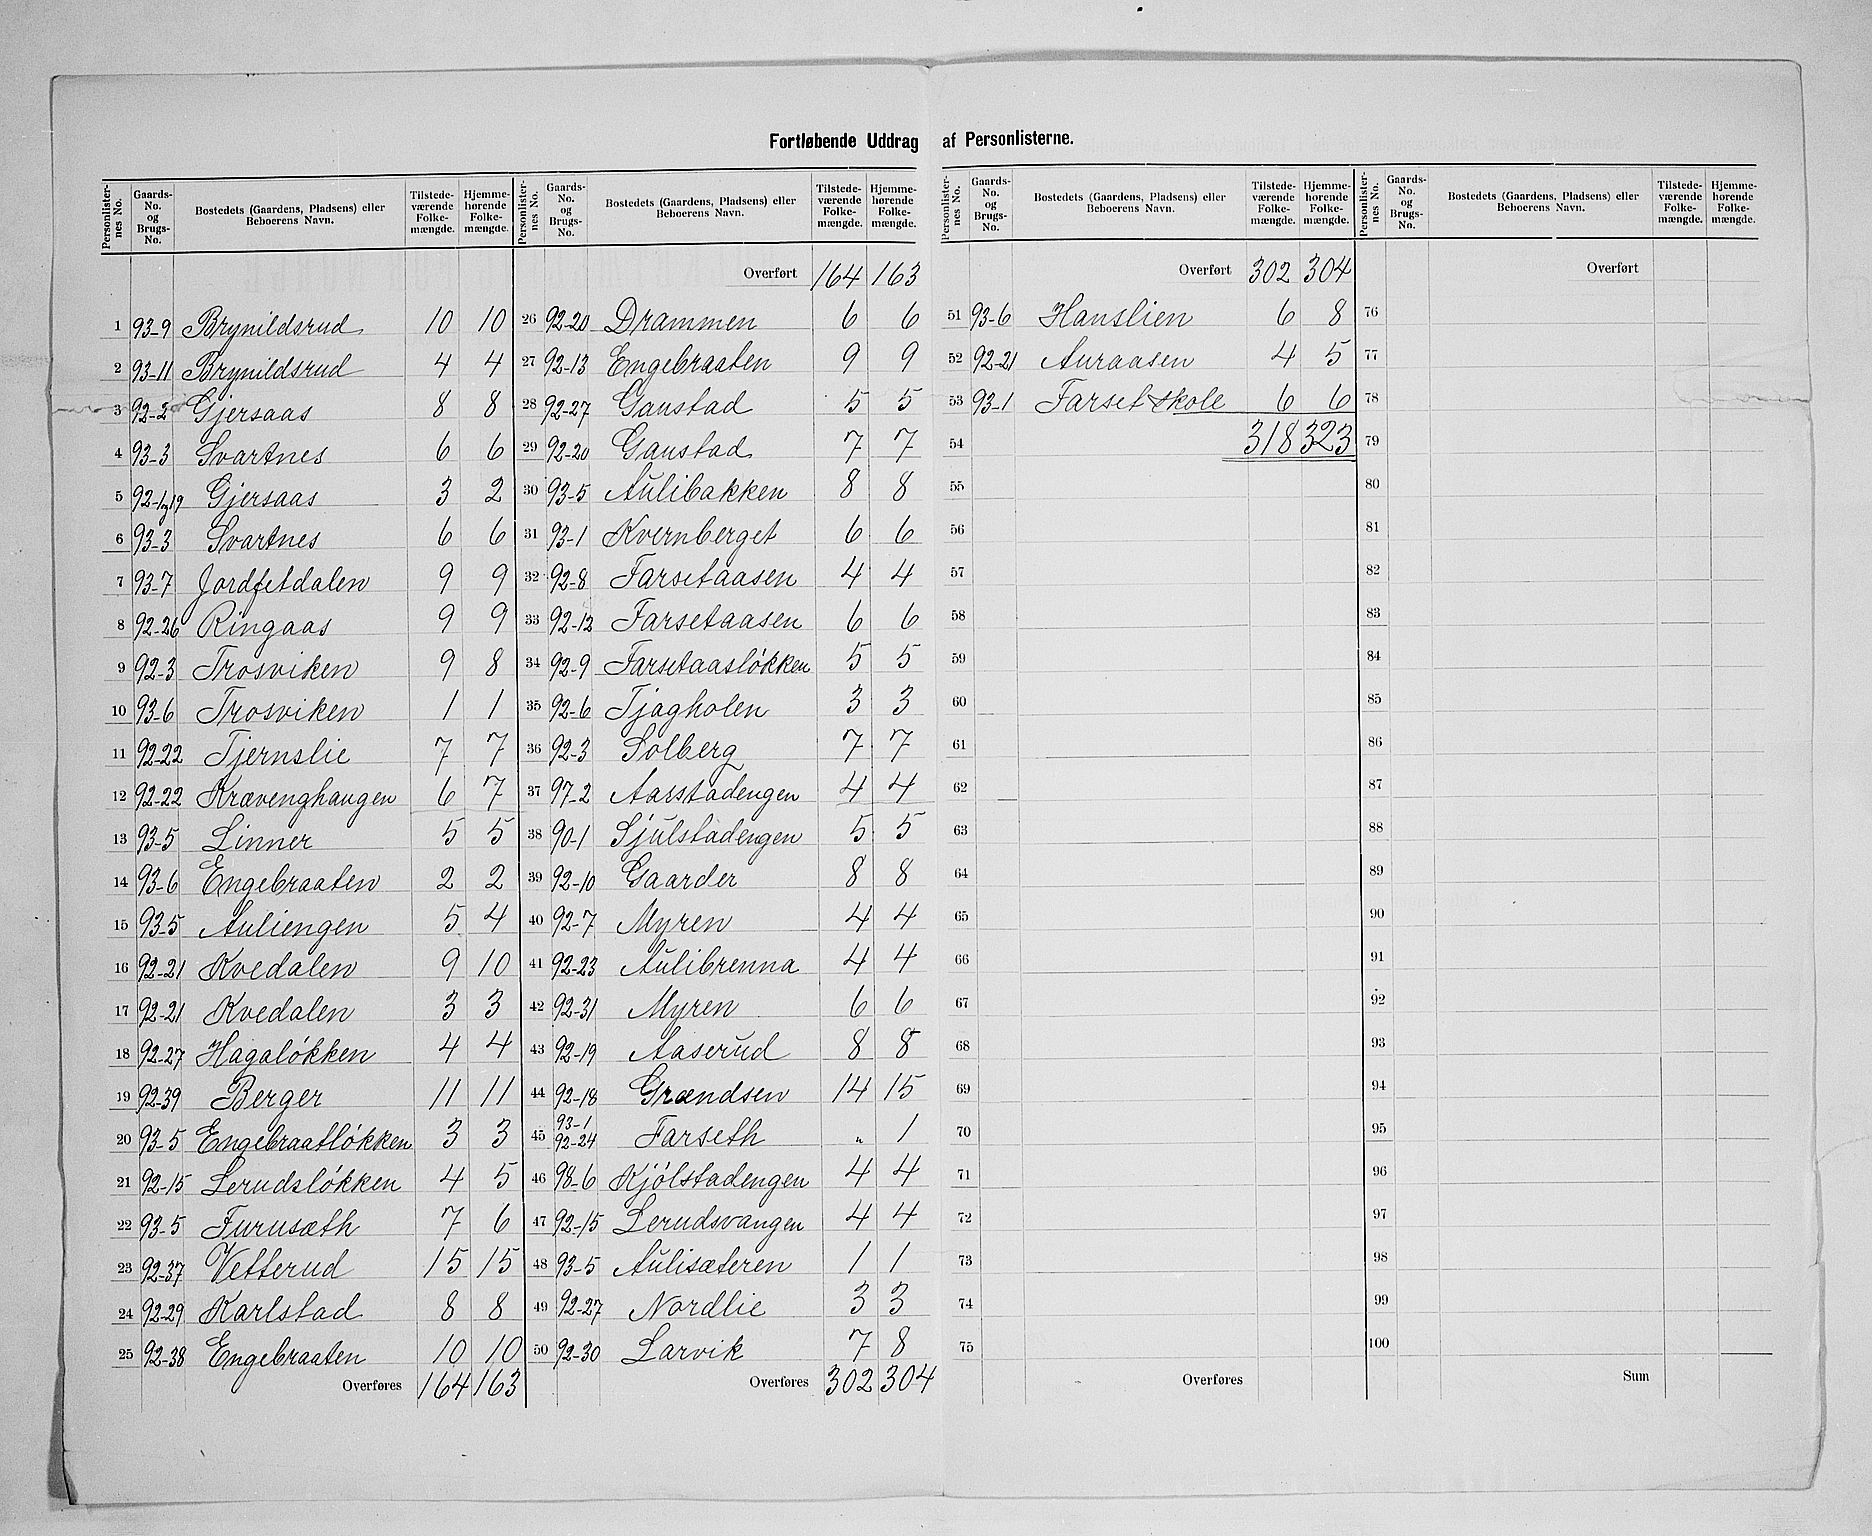 Fortløbende Uddrag af Personlisterne.
Personlister-nes No. | Gaards-No. og Brugs-No. | Bostedets (Gaardens, Pladsens) eller Beboerens Navn. | Tilstede-værende Folke-mængde. | Hjemme-hørende Folke-mængde.
1 93-9 Brynildsrud 10 10
2 93-11 Brynildsrud 4 4
3 92-2 Gjersaas 8 8
4 93-3 Svartnes 6 6
5 92-1,19 Gjersaas 3 2
6 93-3 Svartnes 6 6
7 93-7 Jordfetdalen 9 9
8 92-26 Ringaas 9 9
9 92-3 Trosviken 9 8
10 93-6 Trosviken 1 1
11 92-22 Tjernslie 7 7
12 92-22 Krævenghaugen 6 7
13 93-5 Linner 5 5
14 93-6 Engebraaten 2 2
15 93-5 Auliengen 5 4
16 92-21 Kvedalen 9 10
17 92-21 Kvedalen 3 3
18 92-27 Hagaløkken 4 4
19 92-39 Berger 11 11
20 93-5 Engebraatløkken 3 3
21 92-15 Lerudsløkken 4 5
22 93-5 Furusæth 7 6
23 92-37 Vetterud 15 15
24 92-29 Karlstad 8 8
25 92-38 Engebraaten 10 10
Overføres 164 163
Personlister-nes No. | Gaards-No. og Brugs-No. | Bostedets (Gaardens, Pladsens) eller Beboerens Navn. | Tilstede-værende Folke-mængde. | Hjemme-hørende Folke-mængde.
Overført 164 163
26 92-20 Drammen 6 6
27 92-13 Engebraaten 9 9
28 92-27 Gaustad 5 5
29 92-20 Gaustad 7 7
30 93-5 Aulibakken 8 8
31 93-1 Kvernberget 6 6
32 92-8 Farsetaasen 4 4
33 92-12 Farsetaasen 6 6
34 92-9 Farsetaasløkken 5 5
35 92-6 Tjagholen 3 3
36 92-3 Solberg 7 7
37 97-2 Aasstadengen 4 4
38 90-1 Sjulstadengen 5 5
39 92-10 Gaarder 8 8
40 92-7 Myren 4 4
41 92-23 Aulibrenna 4 4
42 92-31 Myren 6 6
43 92-19 Aaserud 8 8
44 92-18 Grændsen 14 15
45 93-1 92-24 Farseth " 1
46 98-6 Kjølstadengen 4 4
47 92-15 Lerudsvangen 4 4
48 93-5 Aulisæteren 1 1
49 92-27 Nordlie 3 3
50 92-30 Larvik 7 8
Overføres 302 304
Personlister-nes No. | Gaards-No. og Brugs-No. | Bostedets (Gaardens, Pladsens) eller Beboerens Navn. | Tilstede-værende Folke-mængde. | Hjemme-hørende Folke-mængde.
Overført 302 304
51 93-6 Hanslien 6 8
52 92-21 Auraasen 4 5
53 93-1 Farset skole 6 6
54 318 323
55
56
57
58
59
60
61
62
63
64
65
66
67
68
69
70
71
72
73
74
75
Overføres
Personlister-nes No. | Gaards-No. og Brugs-No. | Bostedets (Gaardens, Pladsens) eller Beboerens Navn. | Tilstede-værende Folke-mængde. | Hjemme-hørende Folke-mængde.
Overført
76
77
78
79
80
81
82
83
84
85
86
87
88
89
90
91
92
93
94
95
96
97
98
99
100
Sum